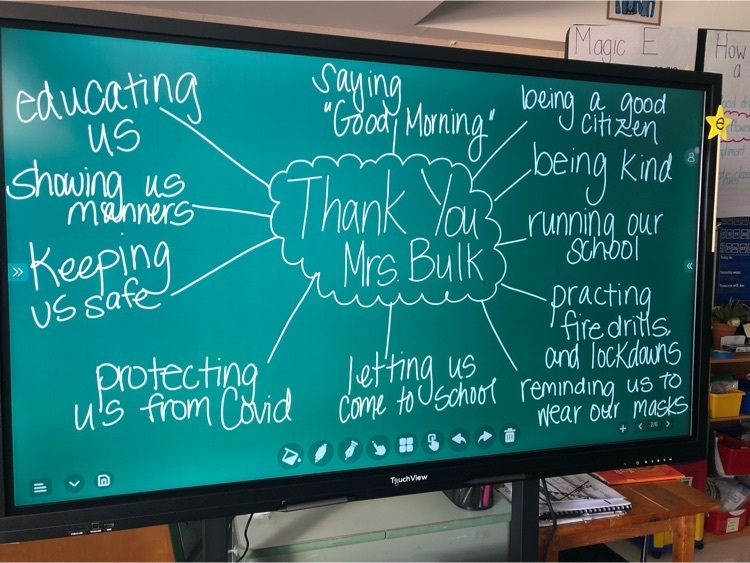 Thank You
Mrs. Bulk
educating
us
saying
"Good Morning"
being a good
citizen
showing us
manners
being kind
keeping
us safe
running our
school
practing
fire drills,
and lockdowns
protecting
us from Covid
letting us
come to school
reminding us to
wear our masks
TouchView
Magic E
How
a
e